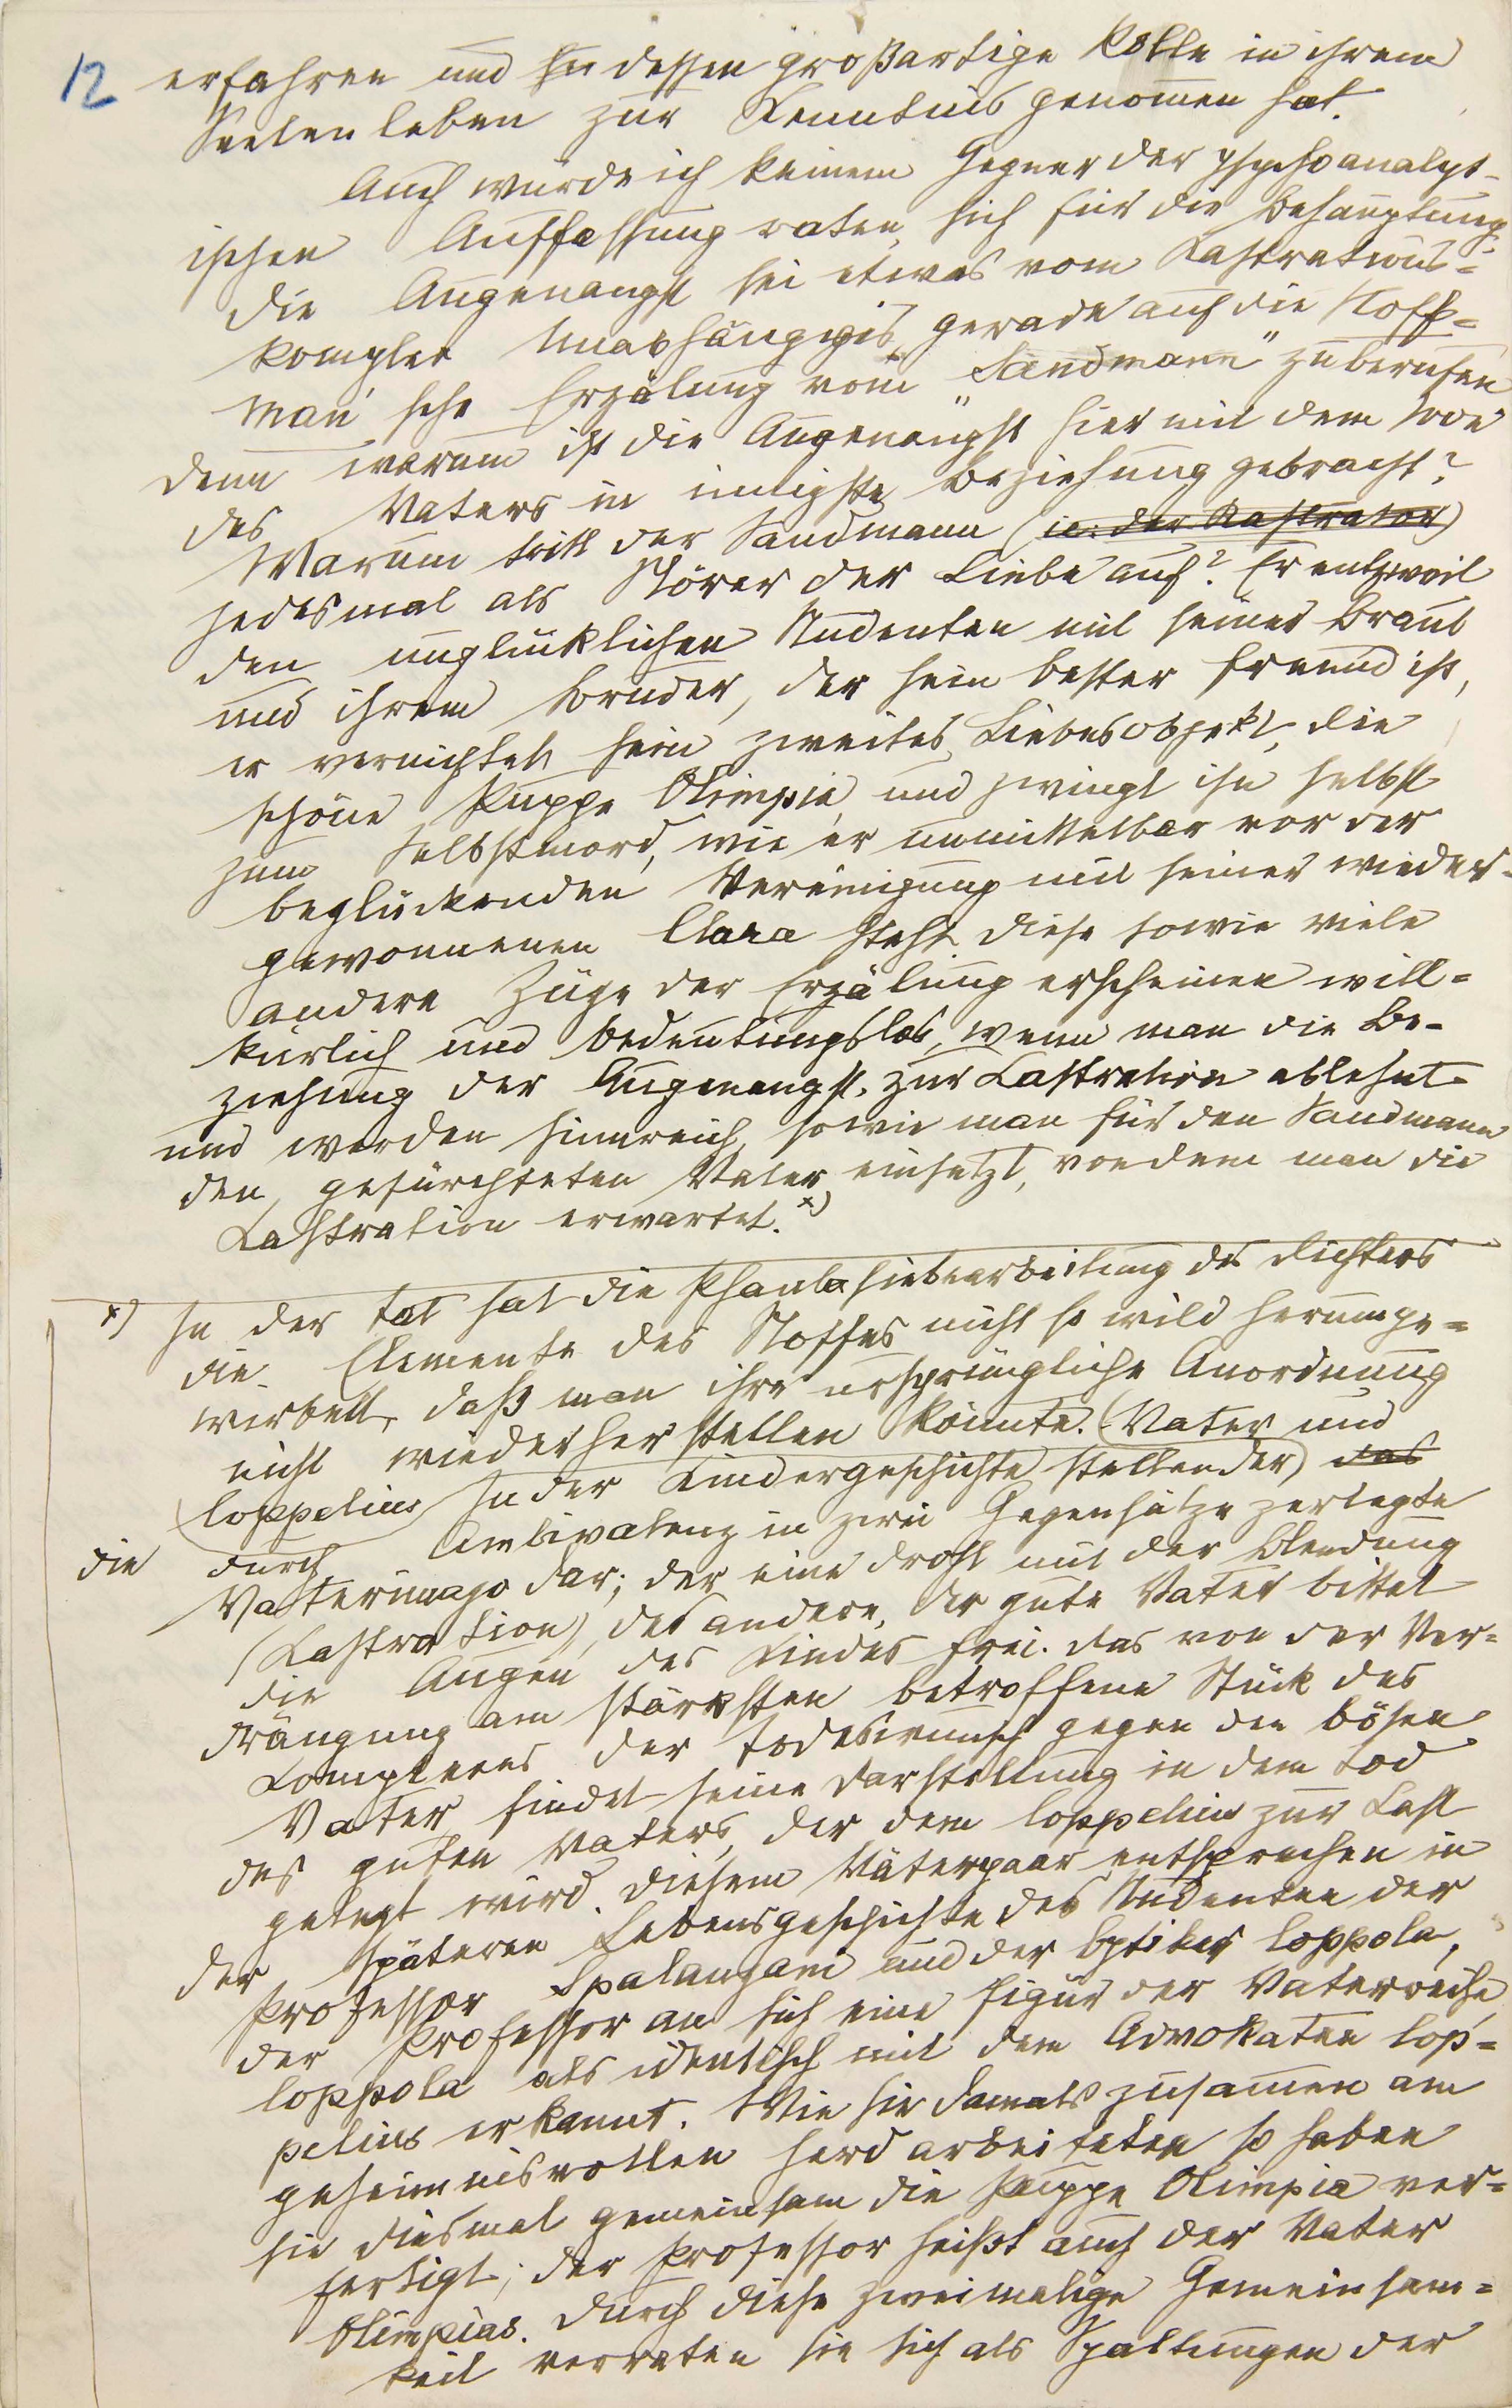 12 erfahren und in dessen großartige Rolle in ihrem
Seelenleben zur Kenntnis genommen hat.
Auch würde ich keinem Gegner der psychoanalyt-
ischen Auffassung raten, sich für die Behauptung,
die Augenangst sei etwas vom Kastrations-
komplex Unabhängiges, gerade auf die Hoff-
mann'sche Erzälung vom „Sandmann" zu berufen
denn warum ist die Augenangst hier mit dem Tode
des Vaters in innigste Beziehung gebracht?
Warum tritt der Sandmann (ie: der Kastrator)
jedesmal als Störer der Liebe auf? Er entzweit
den unglüklichen Studenten mit seiner Braut
und ihrem Bruder, der sein bester Freund ist,
er vernichtet sein zweites Liebesobjekt, die
schöne Puppe Olimpia, und zwingt ihn selbst
zum Selbstmord, wie er unmittelbar vor der
beglückenden Vereinigung mit seiner wieder-
gewonnenen Clara steht. Diese sowie viele
andere Züge der Erzälung erscheinen will-
kürlich und bedeutungslos, wenn man die Be-
ziehung der Augenangst zur Kastration ablehnt
und werden sinnreich, sowie man für den Sandmann
den gefürchteten Vater einsetzt, von dem man die
Kastration erwartet. x)
x) In der Tat hat die Phantasiebearbeitung des Dichters
die Elemente des Stoffes nicht so wild herumge-
wirbelt, daß man ihre ursprüngliche Anordnung
nicht wiederherstellen könnte. (Vater und
Coppelius) In der Kindergeschichte stellen der) das
die durch Ambivalenz in zwei Gegensätze zerlegte
Vaterimago dar; der eine droht mit der Blendung
(Kastration), der andere, der gute Vater bittet
die Augen des Kindes frei. Das von der Ver-
drängung am stärksten betroffene Stück des
Komplexes der Todeswunsch gegen den bösen
Vater, findet seine Darstellung in dem Tod
des guten Vaters, der dem Coppelius zur Last
gelegt wird. Diesem Väterpaar entsprechen in
der späteren Lebensgeschichte des Studenten der
Professor Spalanzani und der Optiker Coppola,
der Professor an sich eine Figur der Vaterreihe
Coppola als identisch mit dem Advokaten Cop-
pelius erkannt. Wie sie damals zusammen am
geheimnisvollen Herd arbeiteten so haben
sie diesmal gemeinsam die Puppe Olimpia ver-
fertigt; der Professor heißt auch der Vater
Olimpias. Durch diese zweimalige Gemeinsam-
keit verraten sie sich als Spaltungen der